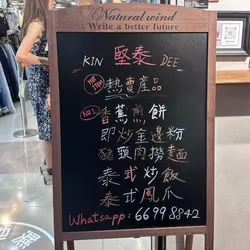 Natural wind
Write a better future
KIN 堅泰 DEE
熱賣產品
No.1 香蕉煎餅
即炒金邊粉
豬頸肉撈麵
泰式炒飯
泰式鳳爪
Whatsapp: 6699 8842